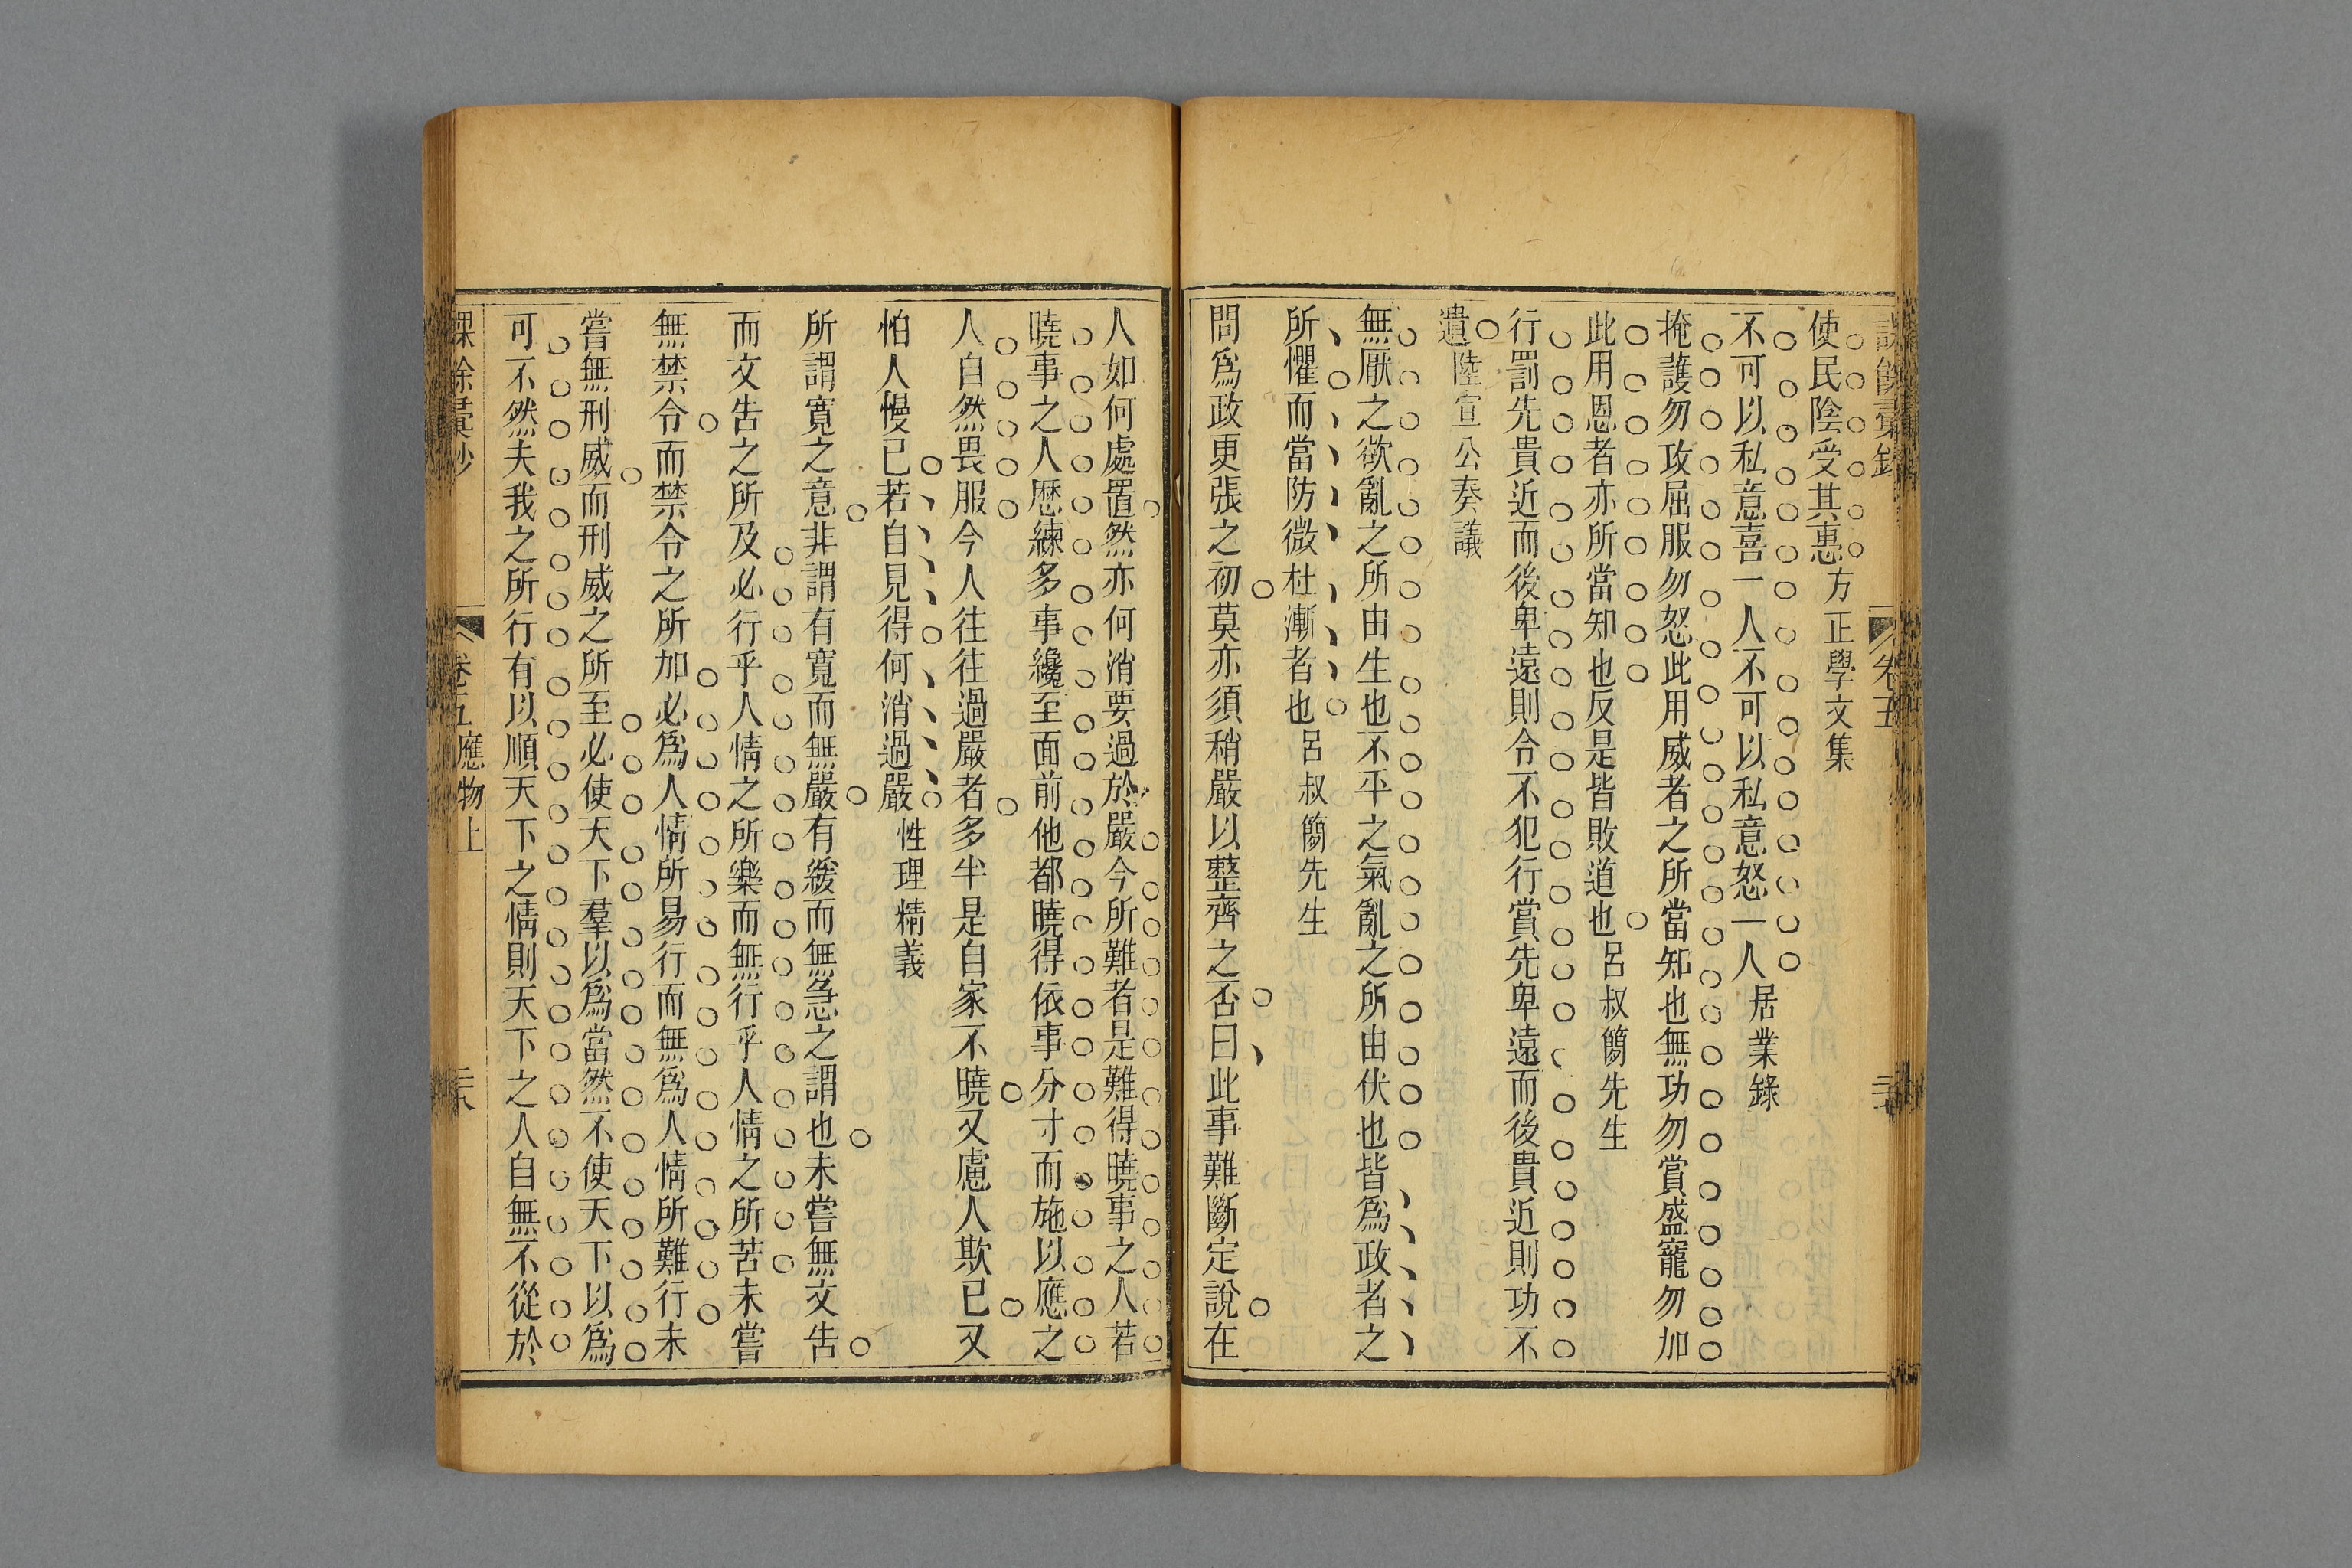 使民陰受其惠方正學文集
不可以私意喜一人不可以私意怒一人居業錄
掩護勿攻屈服勿怒此用威者之所當知也無功勿賞盛寵勿加
此用恩者亦所當知也反是皆敗道也呂叔簡先生
行罰先貴近而後卑遠則令不犯行賞先卑遠而後貴近則功不
遺陸宣公奏議
無厭之欲亂之所由生也不平之氣亂之所由伏也皆爲政者之
所懼而當防微杜漸者也呂叔簡先生
問爲政更張之初莫亦須稍嚴以整齊之否曰此事難斷定說在
人如何處置然亦何消要過於嚴今所難者是難得曉事之人若
曉事之人歷練多事纔至面前他都曉得依事分寸而施以應之
人自然畏服今人往往過嚴者多半是自家不曉又慮人欺已又
怕人慢已若自見得何消過嚴性理精義
所謂寬之意非謂有寬而無嚴有緩而無急之謂也未嘗無文告
而文告之所及必行乎人情之所樂而無行乎人情之所苦未嘗
無禁令而禁令之所加必爲人情所易行而無爲人情所難行未
嘗無刑威而刑威之所至必使天下羣以爲當然不使天下以爲
可不然夫我之所行有以順天下之情則天下之人自無不從於
卷五 應物上 二六